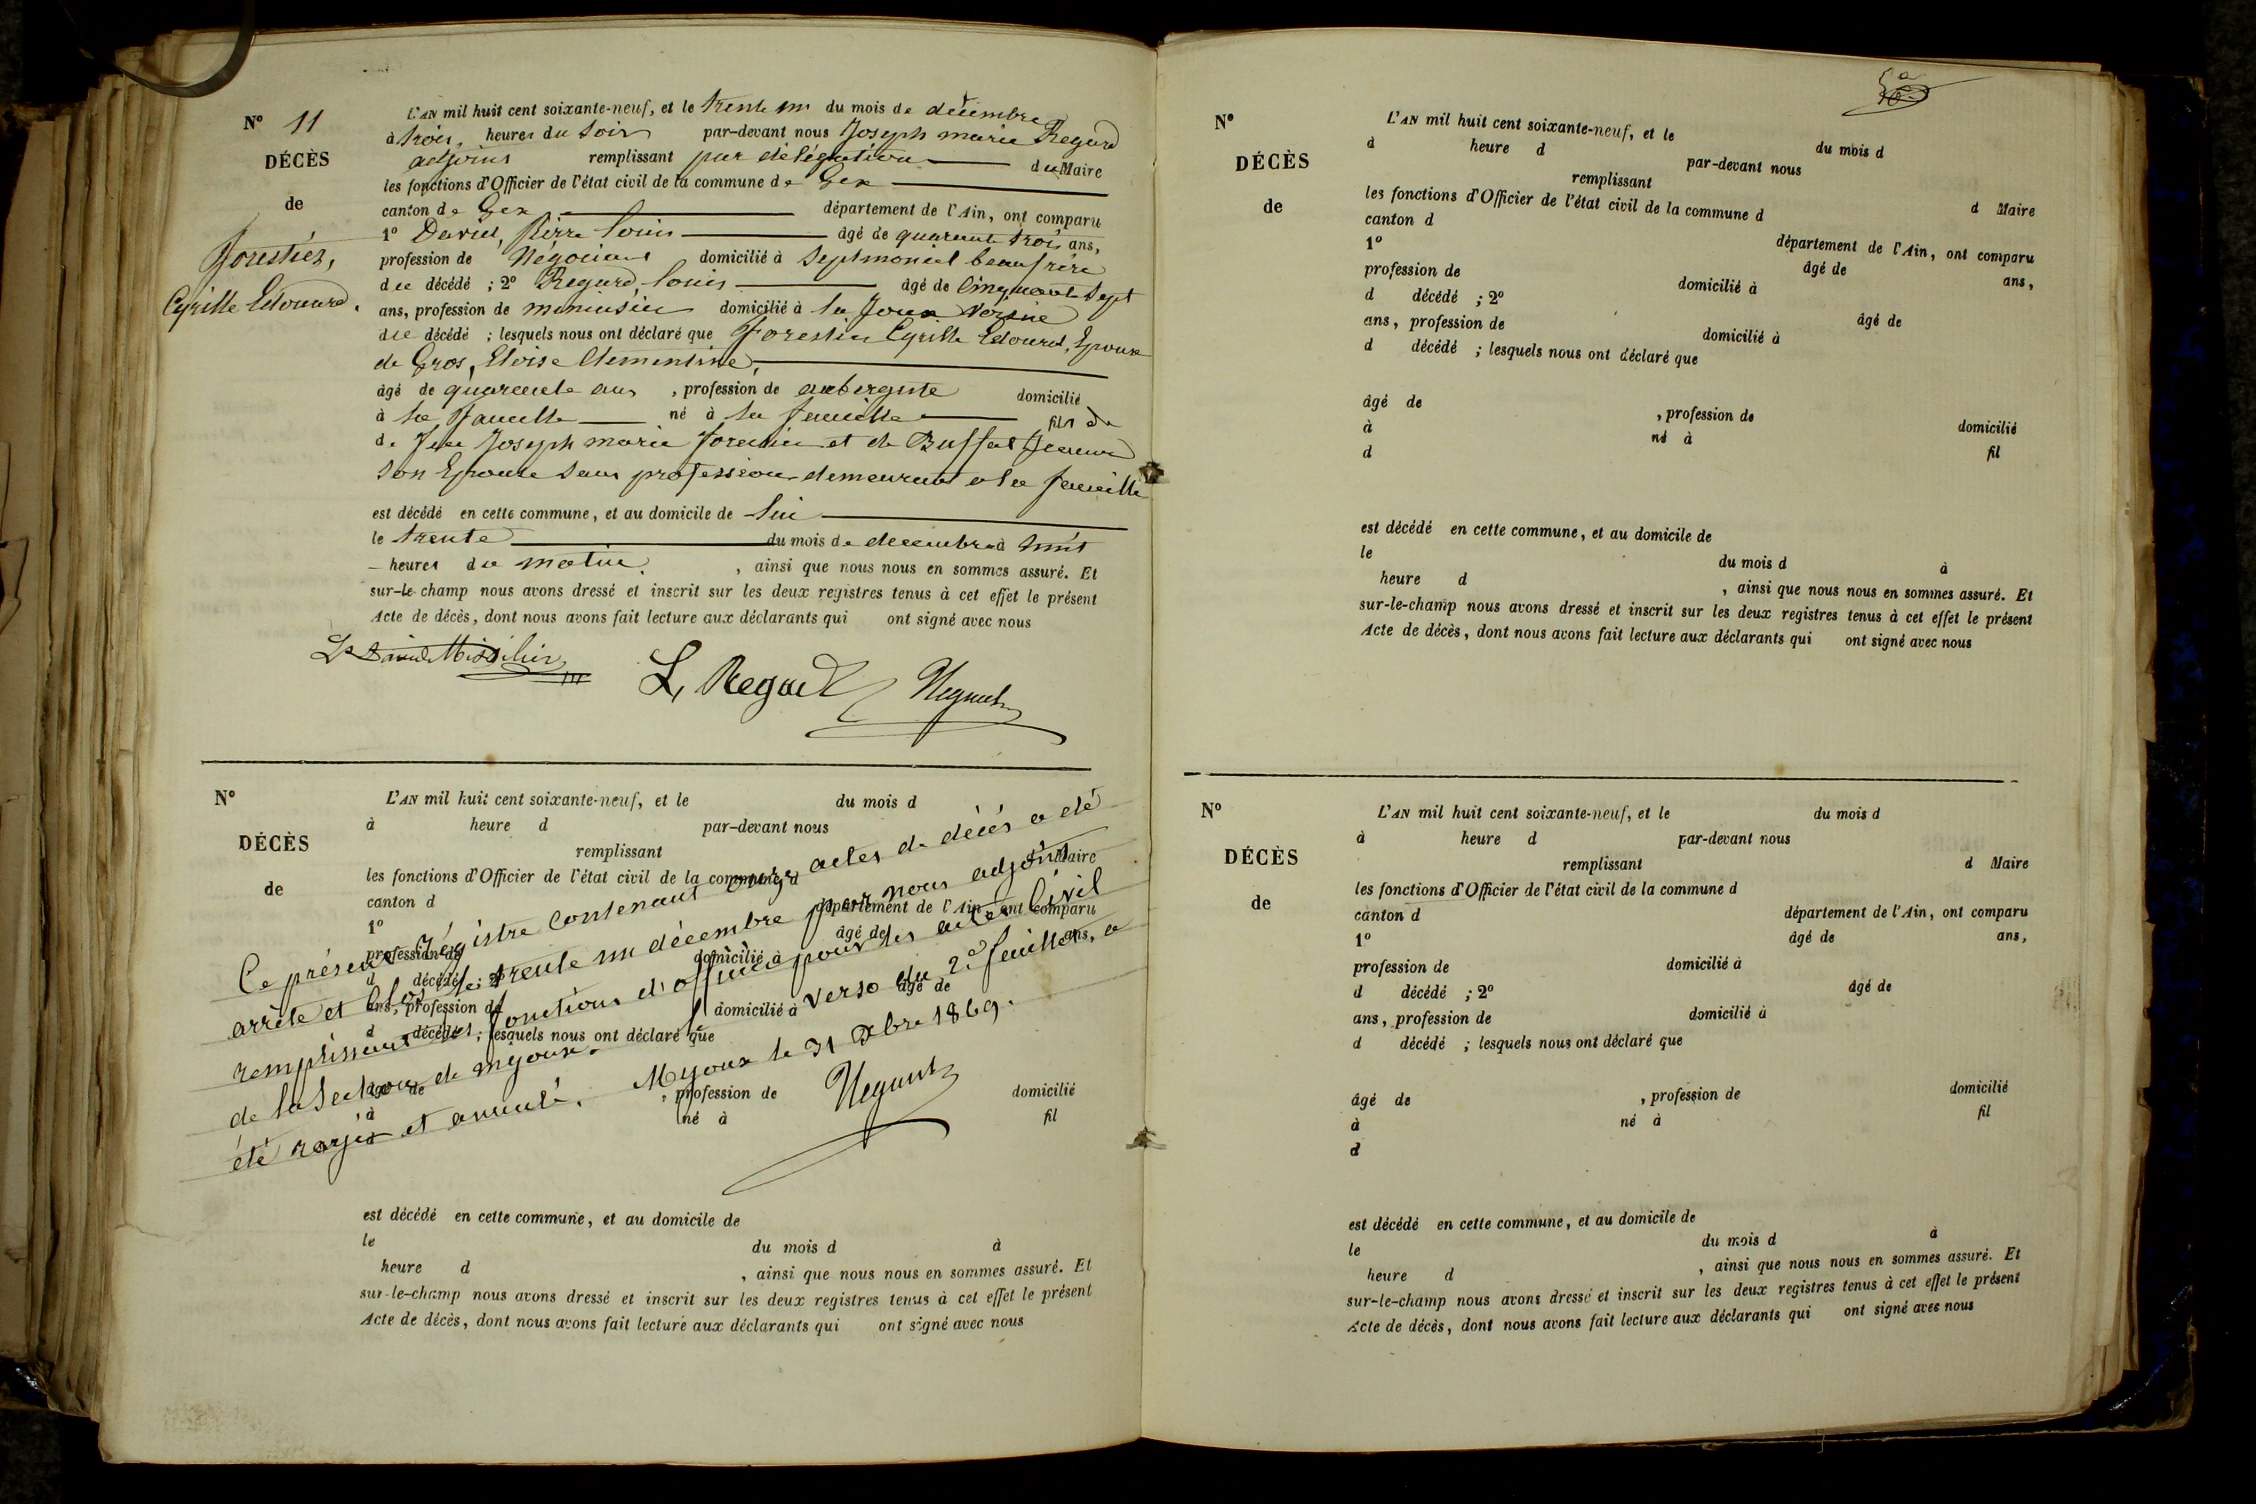 N° 11
DÉCÈS
de
Forestier,
Cyrille Edouard.
L'AN mil huit cent soixante-neuf, et le trente un du mois de décembre
à trois heures du soir par-devant nous Joseph marie Regard
adjoint remplissant par délégation du Maire
les fonctions d'Officier de l'état civil de la commune de Gex
canton de Gex département de l'Ain, ont comparu
1° David, Pierre Louis âgé de quarante trois ans,
profession de Négociant domicilié à Septmoncel beaufrère
du décédé ; 2° Regard, Louis âgé de Cinquante Sept
ans, profession de menuisier domicilié à la Joux Voisin
du décédé ; lesquels nous ont déclaré que Forestier Cyrille Edouard, Epoux
de Gros, Eloise Clementine,
âgé de quarante ans , profession de aubergiste domicilié
à la faucille né à la faucille fils de
de feu Joseph marie forestier et de Buffat Jeanne
Son Epouse Sans profession demeurant a la faucille
est décédé en cette commune, et au domicile de lui
le trente du mois de decembre à huit
heures du matin , ainsi que nous nous en sommes assuré. Et
sur-le-champ nous avons dressé et inscrit sur les deux registres tenus à cet effet le présent
Acte de décès, dont nous avons fait lecture aux déclarants qui ont signé avec nous
L. Regard
N°
DÉCÈS
de
L'AN mil huit cent soixante-neuf, et le du mois d
à heure d par-devant nous
remplissant d Maire
les fonctions d'Officier de l'état civil de la commune d
canton d département de l'Ain, ont comparu
1° âgé de ans,
profession de domicilié à
d décédé ; 2° âgé de
ans, profession de domicilié à
d décédé ; lesquels nous ont déclaré que
âgé de , profession de domicilié
à né à fil
d
Ce présent régistre contenant onze actes de décès a été
arrêté et clos le trente un décembre par nous adjoint
remplissant les fonctions d'officier pour les actes Civil
de la Section de mijoux. le verso du 2e feuillet, a
été rayé et annulé. Mijoux le 31 Xbre 1869.
est décédé en cette commune, et au domicile de
le du mois d à
heure d , ainsi que nous nous en sommes assuré. Et
sur-le-champ nous avons dressé et inscrit sur les deux registres tenus à cet effet le présent
Acte de décès, dont nous avons fait lecture aux déclarants qui ont signé avec nous
N°
DÉCÈS
de
L'AN mil huit cent soixante-neuf, et le du mois d
à heure d par-devant nous
remplissant d Maire
les fonctions d'Officier de l'état civil de la commune d
canton d département de l'Ain, ont comparu
1° âgé de ans,
profession de domicilié à
d décédé ; 2° âgé de
ans, profession de domicilié à
d décédé ; lesquels nous ont déclaré que
âgé de , profession de domicilié
à né à fil
d
est décédé en cette commune, et au domicile de
le du mois d à
heure d , ainsi que nous nous en sommes assuré. Et
sur-le-champ nous avons dressé et inscrit sur les deux registres tenus à cet effet le présent
Acte de décès, dont nous avons fait lecture aux déclarants qui ont signé avec nous
N°
DÉCÈS
de
L'AN mil huit cent soixante-neuf, et le du mois d
à heure d par-devant nous
remplissant d Maire
les fonctions d'Officier de l'état civil de la commune d
canton d département de l'Ain, ont comparu
1° âgé de ans,
profession de domicilié à
d décédé ; 2° âgé de
ans, profession de domicilié à
d décédé ; lesquels nous ont déclaré que
âgé de , profession de domicilié
à né à fil
d
est décédé en cette commune, et au domicile de
le du mois d à
heure d , ainsi que nous nous en sommes assuré. Et
sur-le-champ nous avons dressé et inscrit sur les deux registres tenus à cet effet le présent
Acte de décès, dont nous avons fait lecture aux déclarants qui ont signé avec nous